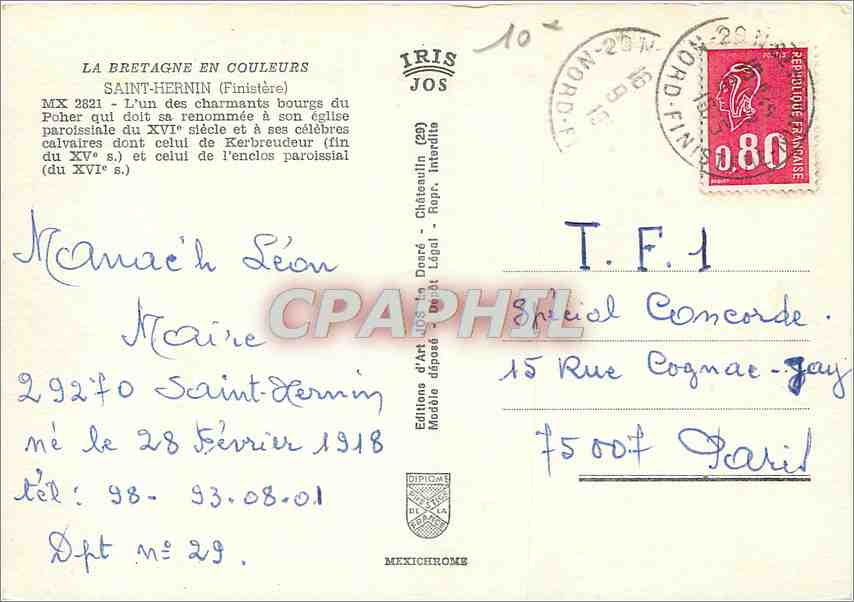 LA BRETAGNE EN COULEURS
SAINT-HERNIN (Finistère)
MX 2821 - L'un des charmants bourgs du
Poher qui doit sa renommée à son église
paroissiale du XVIe siècle et à ses célèbres
calvaires dont celui de Kerbreudeur (fin
du XVe s.) et celui de l'enclos paroissial
(du XVIe s.)
Manac'h Léon
Maire
29270 Saint-Hernin
né le 28 Février 1918
tél : 98- 93.08.01
Dpt no 29.
IRIS
JOS
Editions d'Art JOS Le Doaré - Châteaulin (29)
Modèle déposé - Dépôt Légal - Repr. Interdite
DIPLOME
PRESTIGE
DE LA
FRANCE
MEXICHROME
10
-29 N
NORD-FI
16
9
-29 N
NORD-FINIS
REPUBLIQUE FRANÇAISE
POSTES
0,80
T.F.1
Spécial Concorde.
15 Rue Cognac-Jay
75007 Paris
CPAPHIL